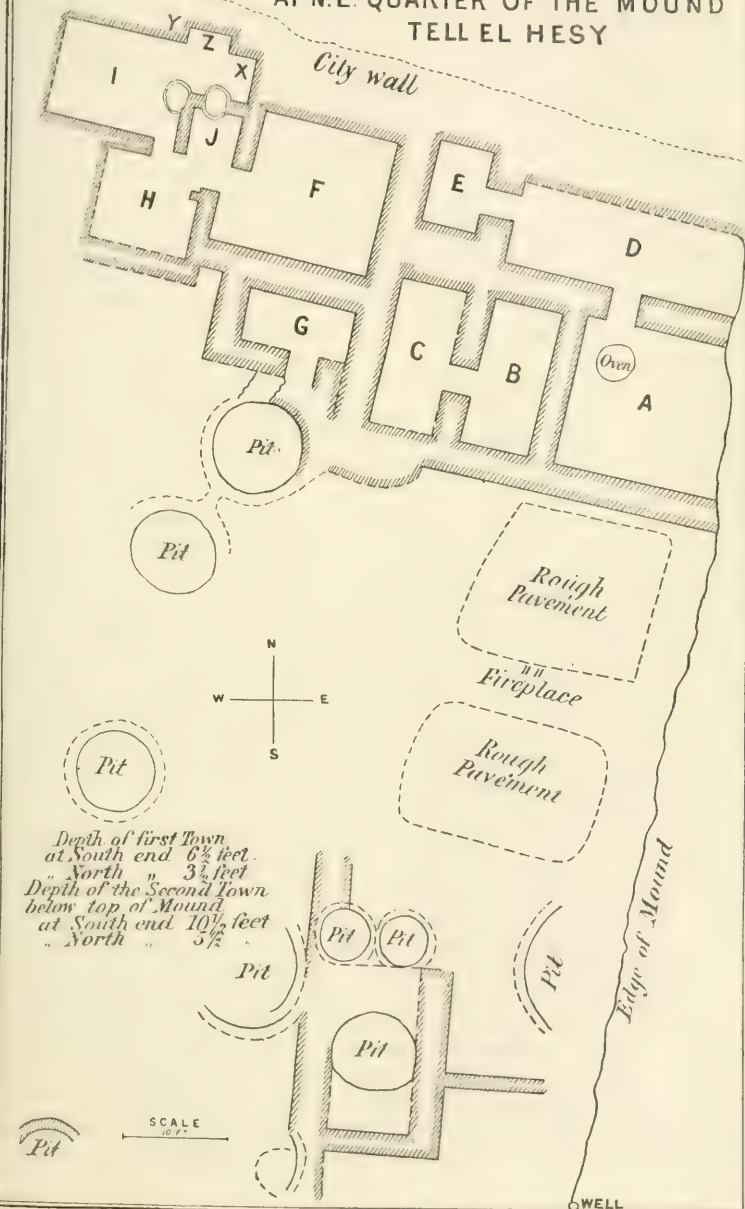 AT N.E. QUARTER OF THE MOUND
TELL EL HESY
City wall
Y
Z
X
I
J
E
F
H
D
G
C
B
Oven
A
Pit
Pit
Rough
Pavement
N
W E
S
Fireplace
Rough
Pavement
Pit
Depth of first Town
at South end 6½ feet.
„ North „ 3½ feet
Depth of the Second Town
below top of Mound
at South end 10½ feet
„ North „ 5½ „
Pit
Pit
Pit
Pit
Pit
Edge of Mound
Pit
SCALE
10 FT
WELL